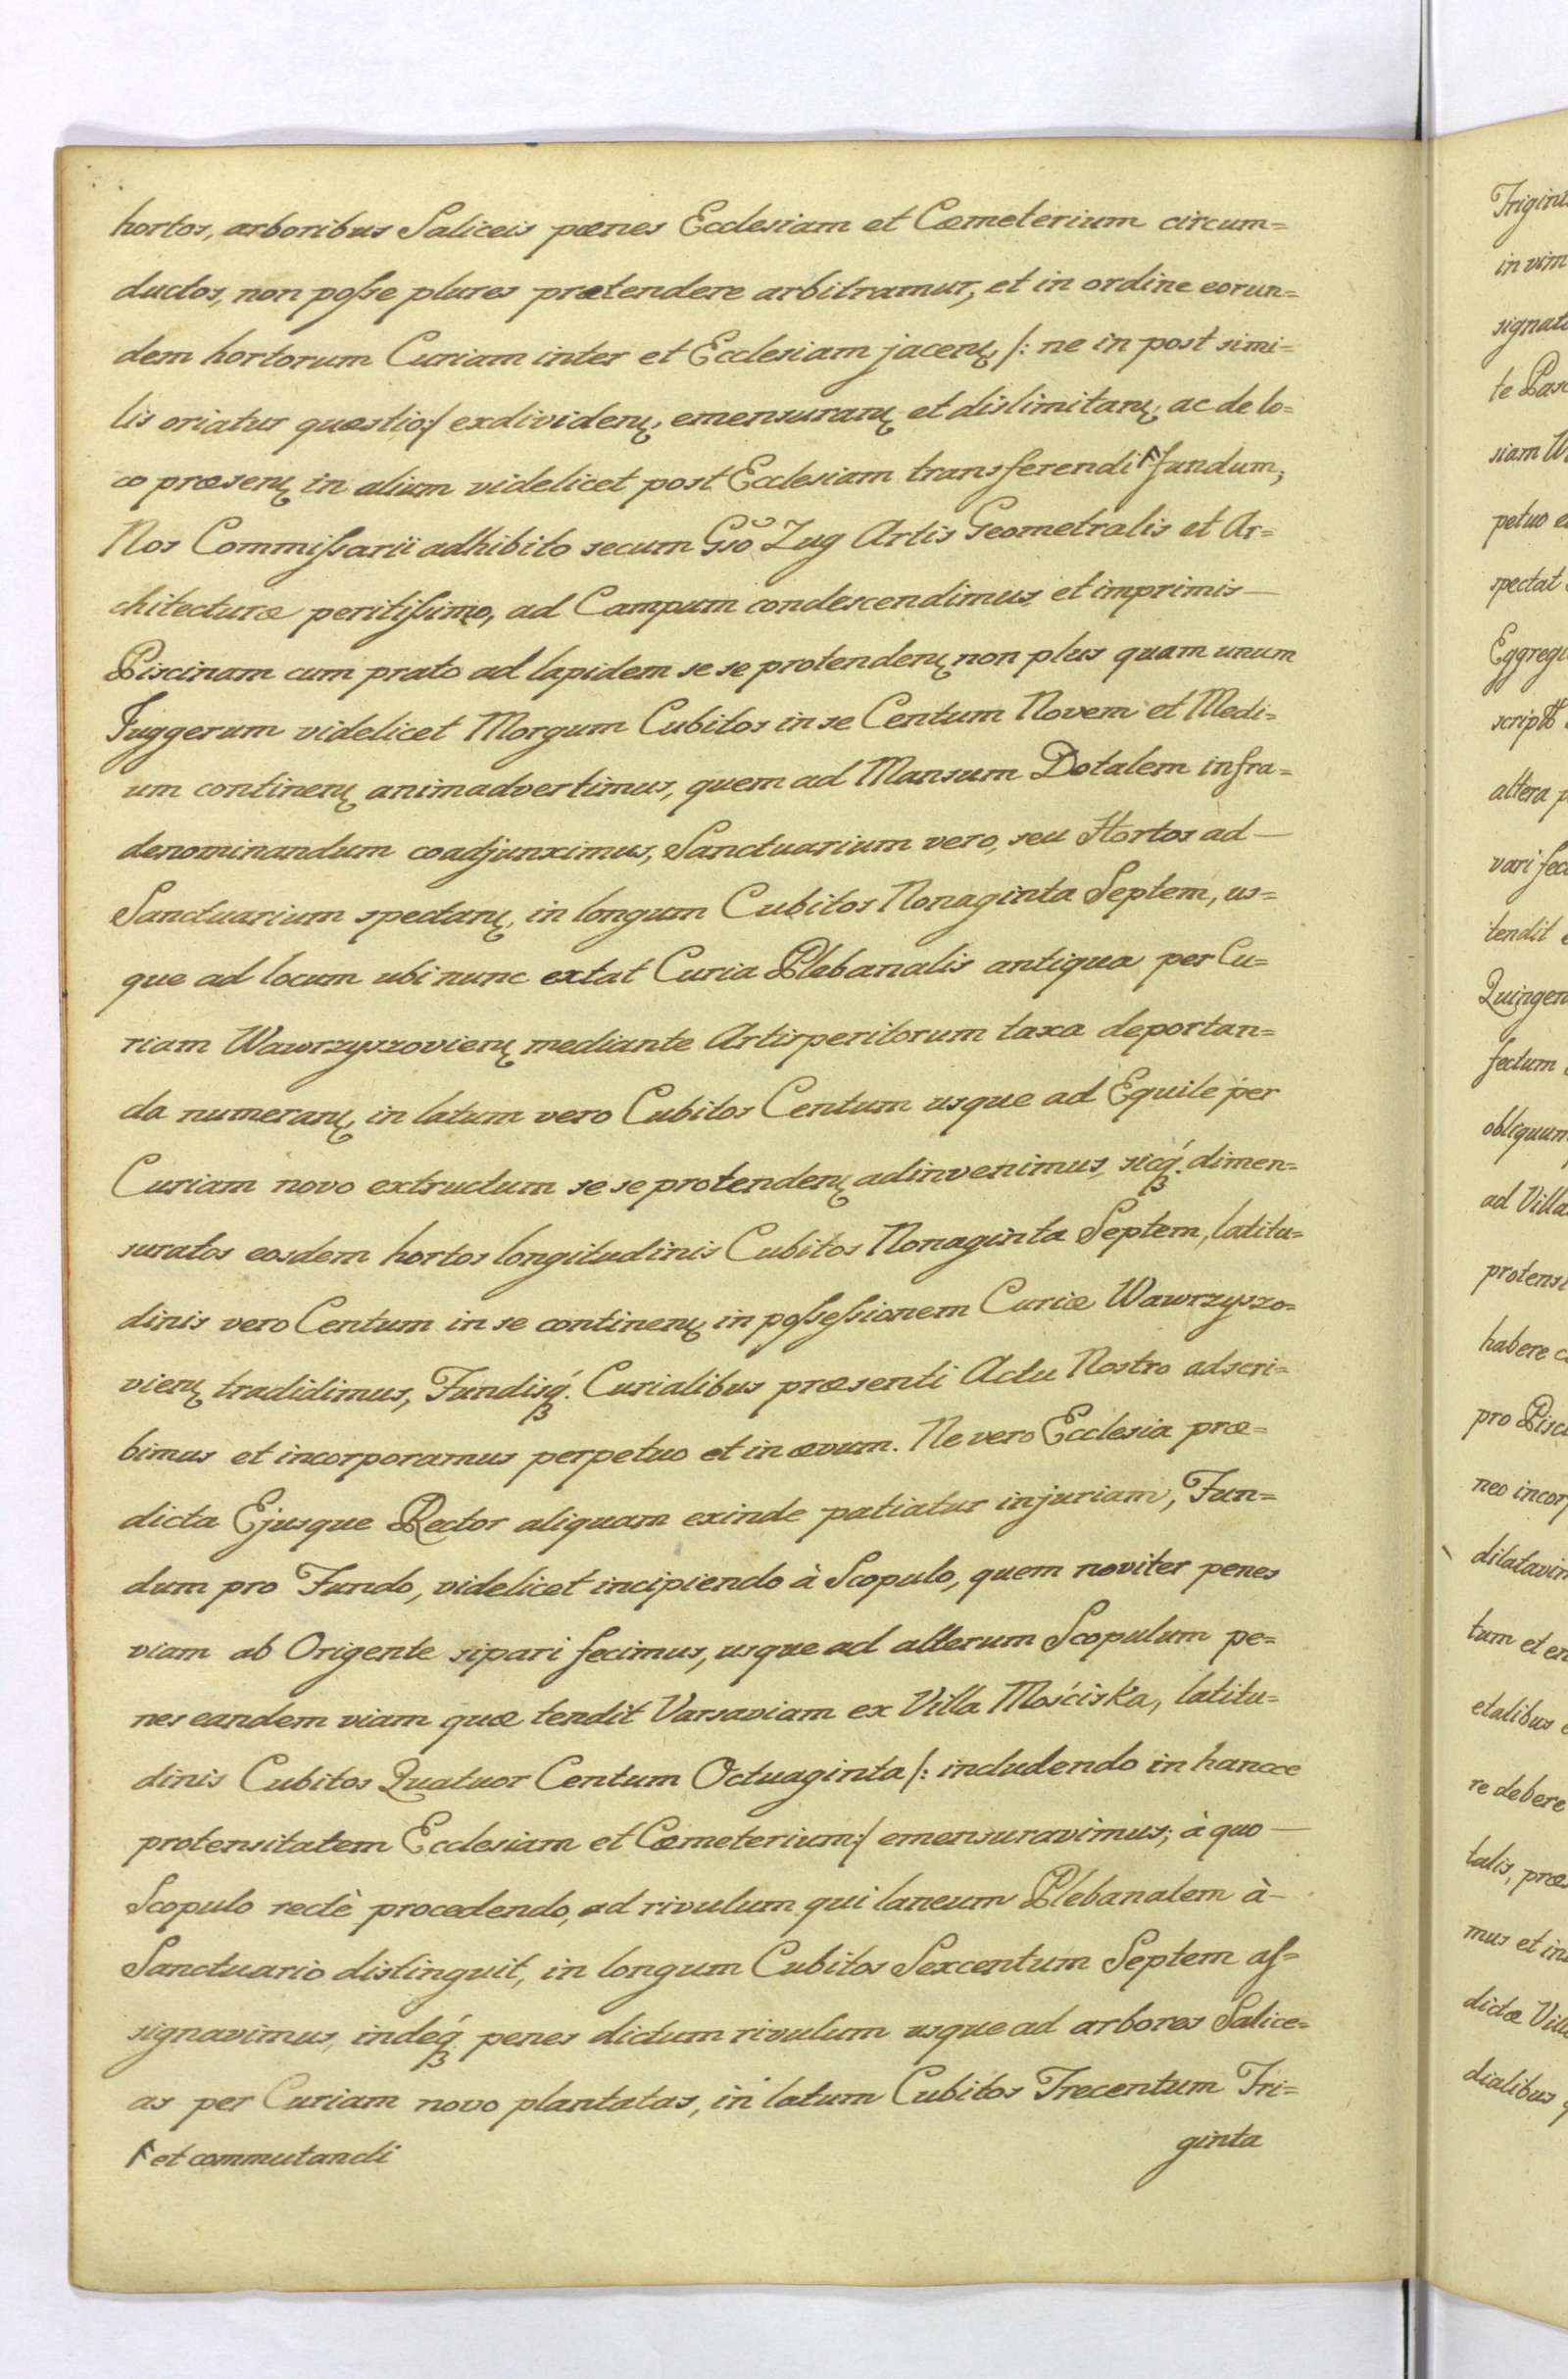 hortos, arboribus Saliceis pœnes Ecclesiam et Cœmeterium circum=
ductos, non poſse plures prætendere arbitramur, et in ordine eorun=
dem hortorum Curiam inter et Ecclesiam jacenꝭ /: ne in post simi=
lis oriatur quæstio:/ exdividenꝭ, emensuranꝭ et dislimitanꝭ, ac de lo=
co præsenꝭ in alium videlicet post Ecclesiam transferendi ꟻ fundum;
Nos Commiſsarii adhibito secum Gsõ Zug Artis Geometralis et Ar=
chitecturæ peritiſsimo, ad Campum condescendimus, et imprimis —
Piscinam cum prato ad lapidem se se protendenꝭ non plus quam unum
Juggerum videlicet Morgum Cubitos in se Centum Novem et Medi=
um continenꝭ animadvertimus, quem ad Mansum Dotalem infra=
denominandum coadjunximus, Sanctuarium vero, seu Hortos ad —
Sanctuarium spectanꝭ, in longum Cubitos Nonaginta Septem, us=
que ad locum ubi nunc extat Curia Plebanalis antiqua per Cu=
riam Wawrzyszovienꝭ mediante Artisperitorum taxa deportan=
da numeranꝭ, in latum vero Cubitos Centum usque ad Equile per
Curiam novo extructum se se protendenꝭ adinvenimus, sicq́ꝫ. dimen=
suratos eosdem hortos longitudinis Cubitos Nonaginta Septem, latitu=
dinis vero Centum in se continenꝭ in poſseſsionem Curiæ Wawrzyszo=
vienꝭ tradidimus, Fundisq́ꝫ. Curialibus præsenti Actu Nostro adscri=
bimus et incorporamus perpetuo et in ævum. Ne vero Ecclesia præ=
dicta Ejusque Rector aliquam exinde patiatur injuriam, Fun=
dum pro Fundo, videlicet incipiendo à Scopulo, quem noviter penes
viam ab Origente sipari fecimus, usque ad alterum Scopulum pe=
nes eandem viam quæ tendit Varsaviam ex Villa Mościska, latitu=
dinis Cubitos Quatuor Centum Octuaginta /: includendo in hancce
protensitatem Ecclesiam et Cœmeterium:/ emensuravimus; à quo —
Scopulo rectè procedendo, ad rivulum qui laneum Plebanalem à —
Sanctuario distinguit, in longum Cubitos Sexcentum Septem aſ=
signavimus, indeq́ꝫ penes dictum rivulum usque ad arbores Salice=
as per Curiam novo plantatas, in latum Cubitos Trecentum Tri=
ꟻ et commutandi ginta
Trigint
in vim
signat
te Pas
siam W
petuo e
spectat
Eggregi
script
altera p
vari fec
tendit
Quingen
fectum
obliquum
ad Villa
protensi
habere c
pro Pisc
neo incorp
dilatavim
tum et en
etalibus
re debere
talis, præ
mus et in
dictæ Vill
dialibus q